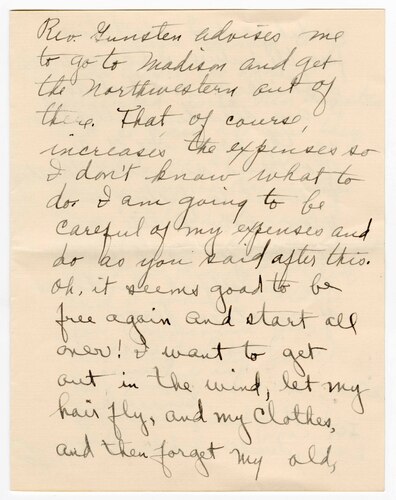 Rev. Gunsten advises me
to go to Madison and get
the Northwestern out of
there. That of course,
increases the expenses so
I don't know what to
do. I am going to be
careful of my expenses and
do as you said after this.
Oh, it seems good to be
free again and start all
over! I want to get
out in the wind, let my
hair fly, and my clothes,
and then forget my old,